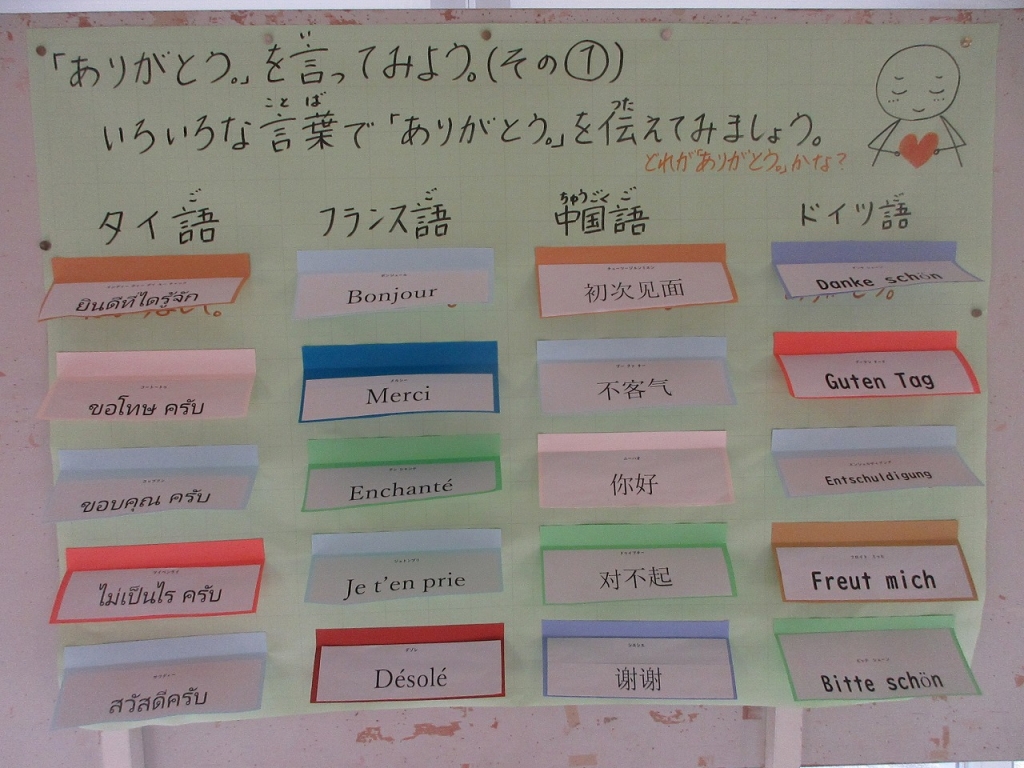 「ありがとう。」を言ってみよう。(その①)
いろいろな言葉で「ありがとう。」を伝えてみましょう。
どれが「ありがとう。」かな？
タイ語 フランス語 中国語 ドイツ語
ยินดีที่ได้รู้จัก Bonjour 初次见面 Danke schön
ขอโทษ ครับ Merci 不客气 Guten Tag
ขอบคุณ ครับ Enchanté 你好 Entschuldigung
ไม่เป็นไร ครับ Je t'en prie 对不起 Freut mich
สวัสดีครับ Désolé 谢谢 Bitte schön